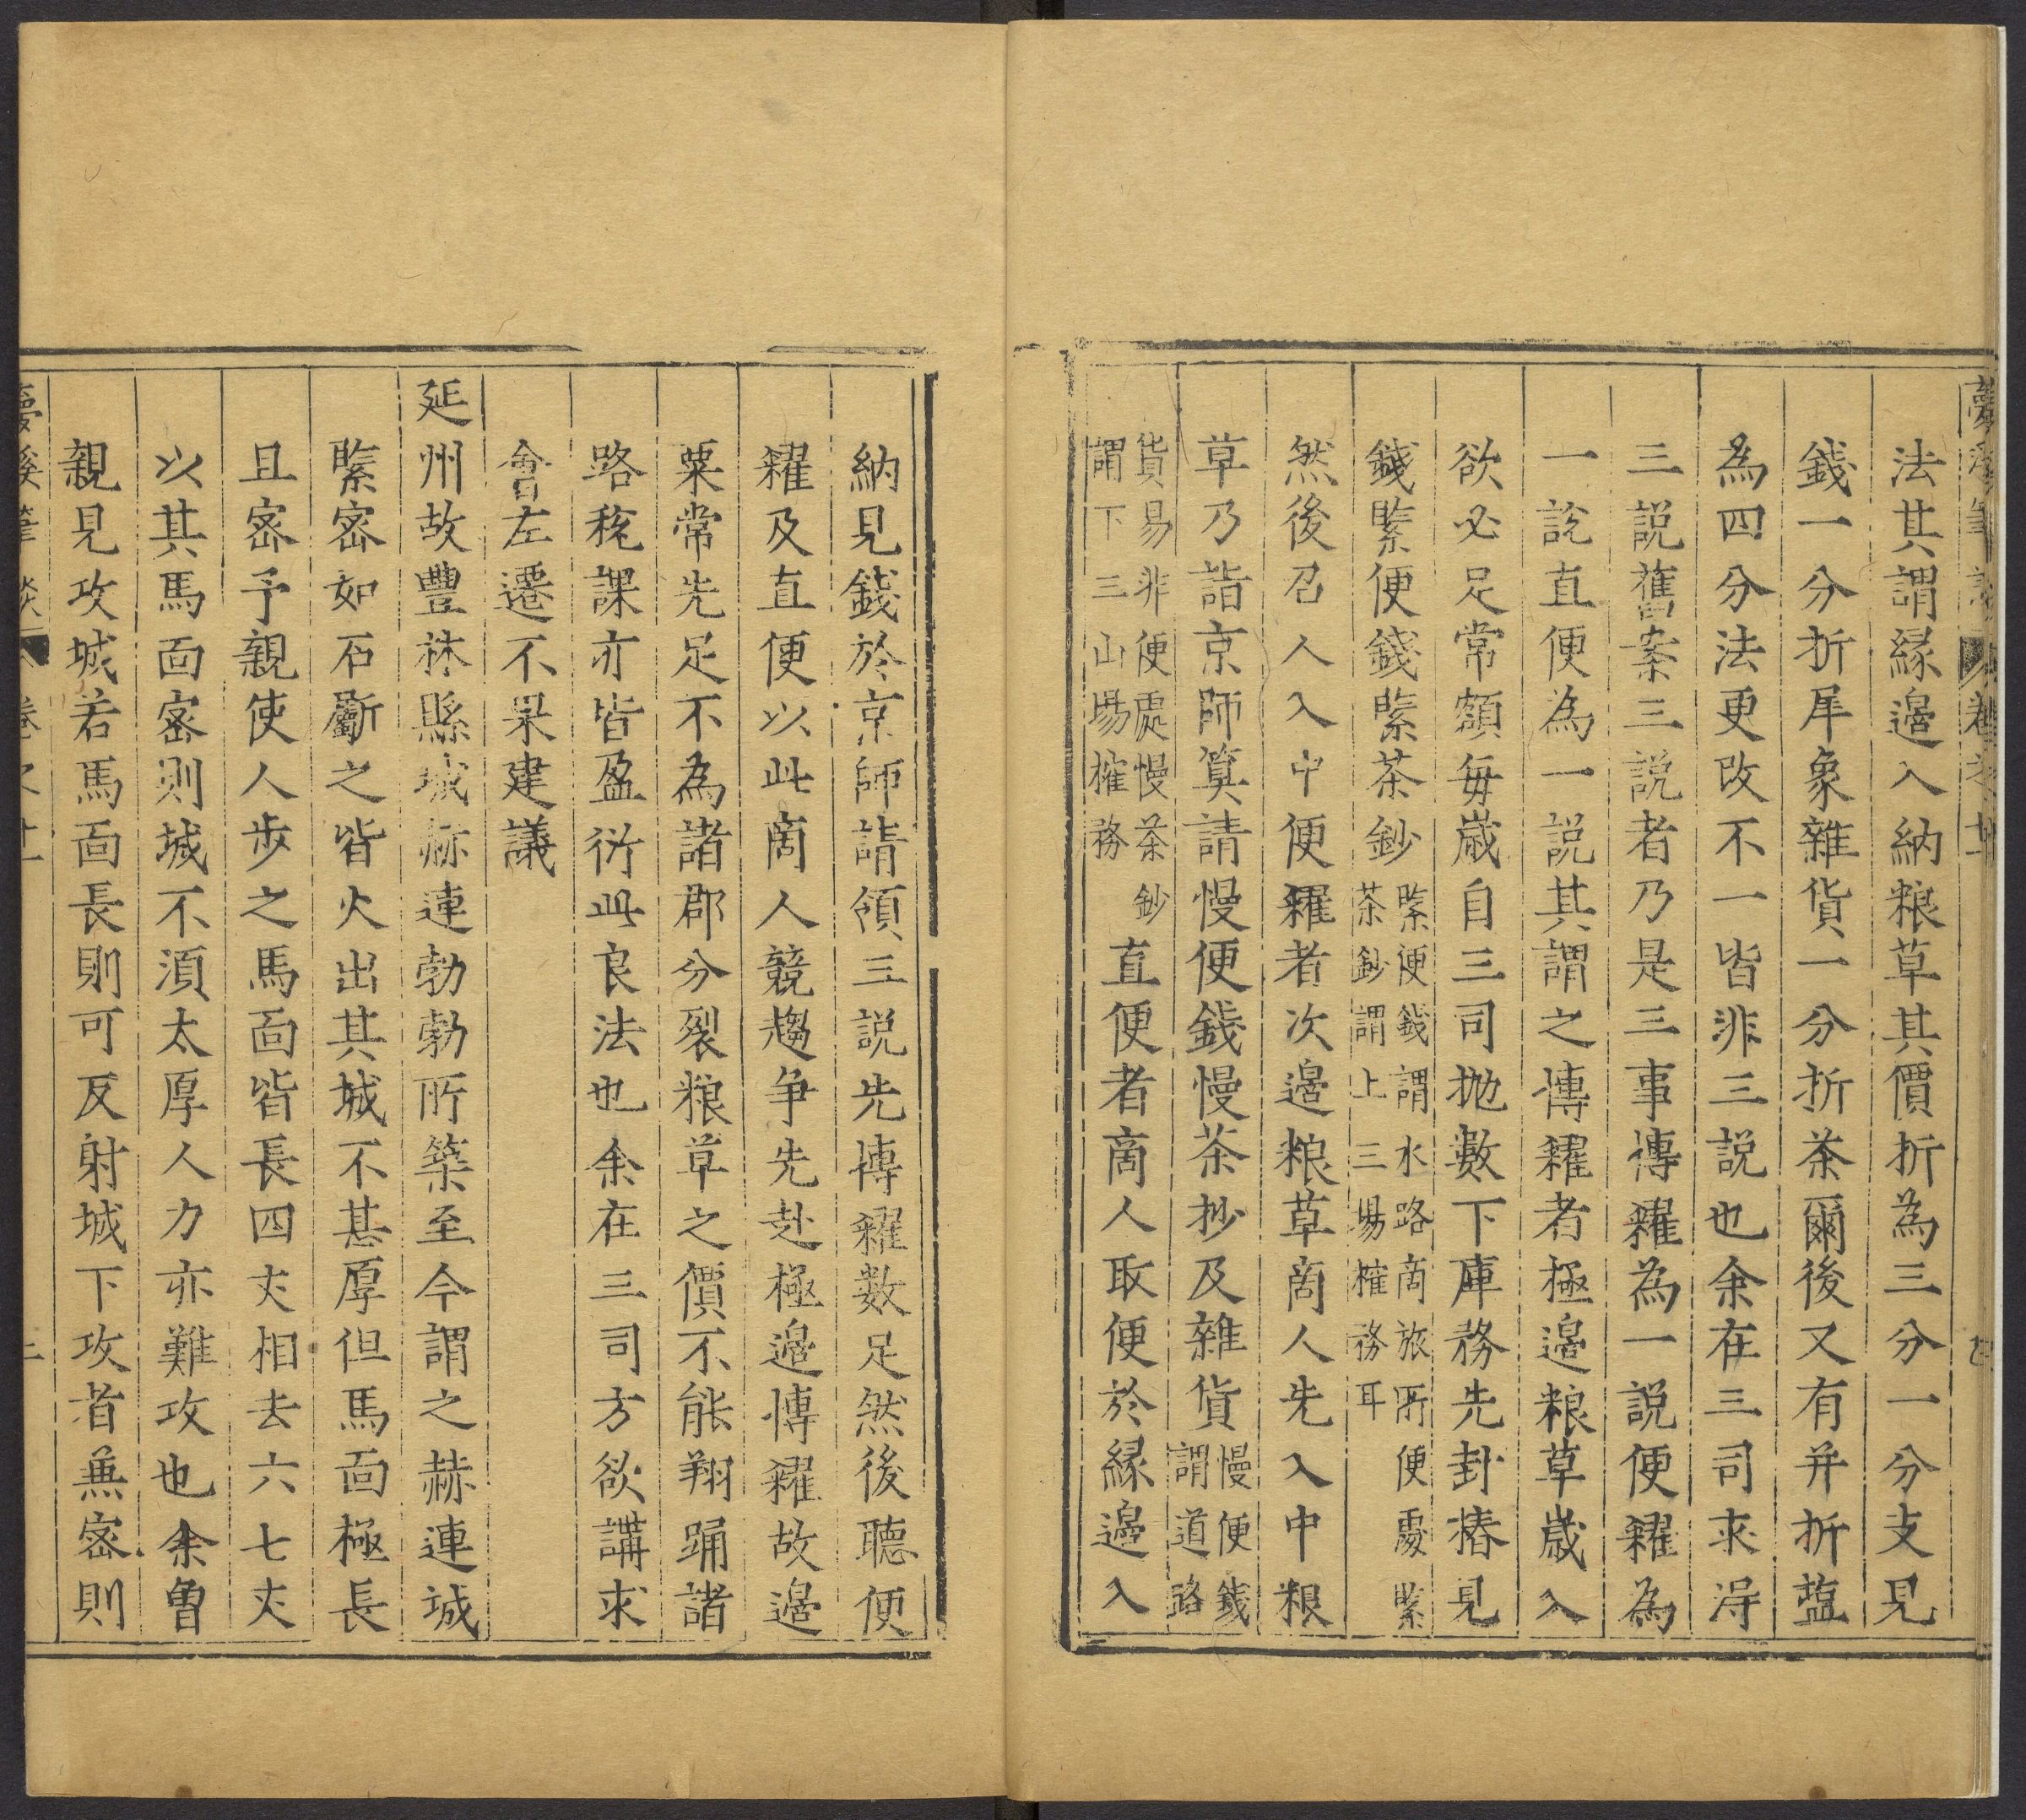 法其謂緣邉入納粮草其價折為三分一分支見
錢一分折犀象雜貨一分折茶爾後又有并折塩
為四分法更改不一皆非三説也余在三司求得
三説舊案三説者乃是三事博糴為一説便糴為
一説直便為一説其謂之博糴者極邉粮草歲入
欲必足常額毎歲自三司抛數下庫務先封樁見
錢緊便錢緊茶鈔緊便錢謂水路商旅所便處緊茶鈔謂上三場榷務耳
然後召人入中便糴者次邉粮草商人先入中粮
草乃詣京師筭請慢便錢慢茶抄及雜貨慢便錢謂道路
貨易非便處慢茶鈔謂下三山場榷務直便者商人取便於緣邉入
納見錢於京師請領三説先博糴數足然後聽便
糴及直便以此商人競趨争先赴極邉博糴故邉
粟常先足不為諸郡分裂粮草之價不能翔踊諸
路稅課亦皆盈衍此良法也余在三司方欲講求
會左遷不果建議
延州故豐林縣城赫連勃勃所築至今謂之赫連城
緊密如石斸之皆火出其城不甚厚但馬面極長
且密予親使人步之馬面皆長四丈相去六七丈
以其馬面密則城不湏太厚人力亦難攻也余曽
親見攻城若馬面長則可反射城下攻者兼密則
夢溪筆談 卷之十一